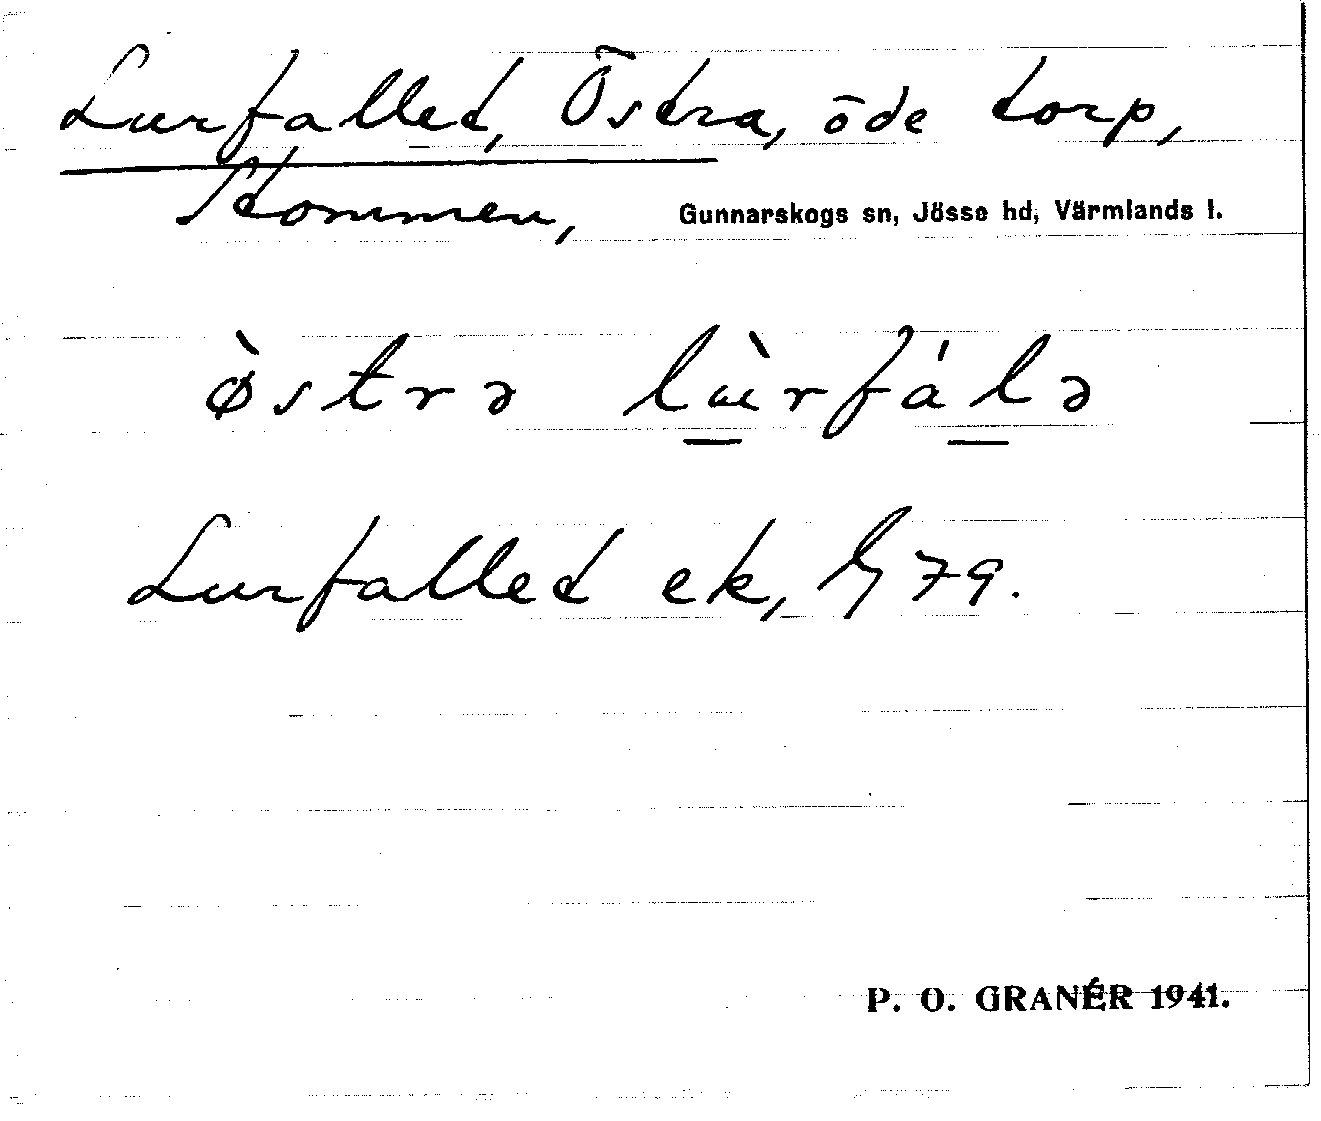 Lurfallet, Östra, öde torp,
Stommen, Gunnarskogs sn, Jösse hd, Värmlands l.
ø̀strə lùrfálə
Lurfallet ek, 79.
P. O. GRANÉR 1941.